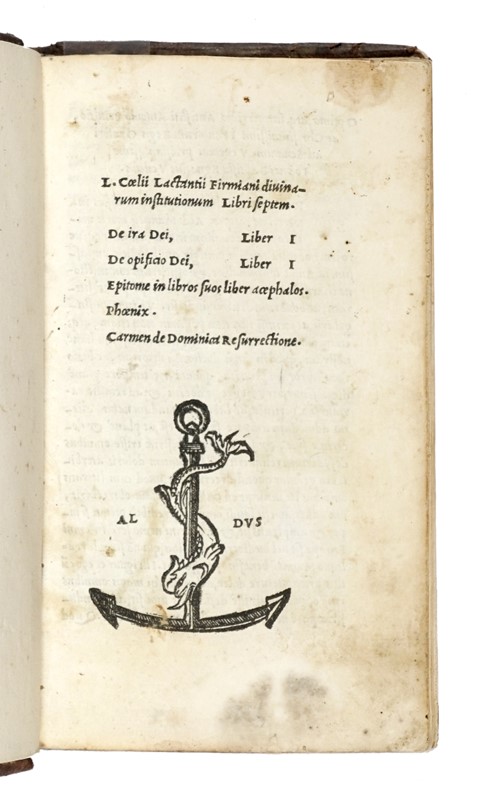 L. Cœlii Lactantii Firmiani diuina-
rum institutionum Libri septem.
De ira Dei, Liber I
De opificio Dei, Liber I
Epitome in libros suos liber acephalos.
Phœnix.
Carmen de Dominica Resurrectione.
AL DVS